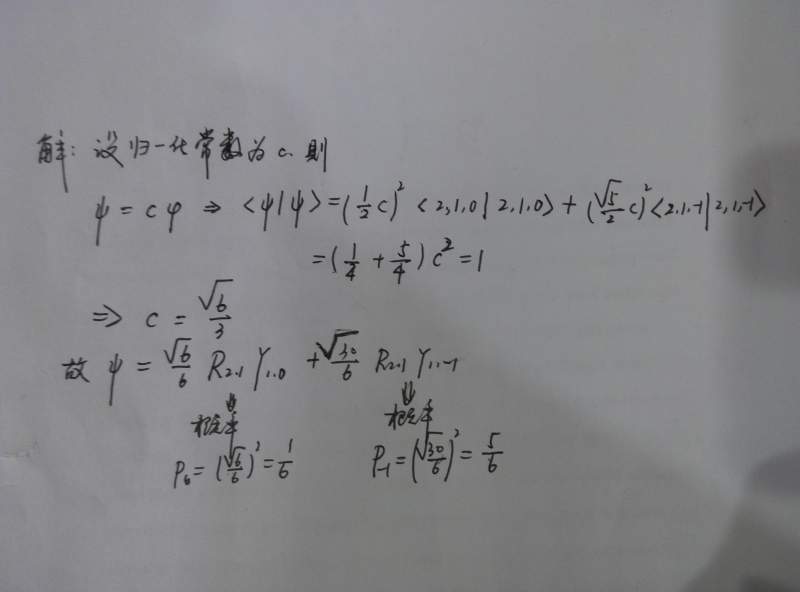 解：设归一化常数为c. 则
ψ = cφ ⇒ <ψ|ψ> = (1/2 c)² <2,1,0|2,1,0> + (√5/2 c)² <2,1,-1|2,1,-1>
= (1/4 + 5/4) c² = 1
⇒ c = √6/3
故 ψ = √6/6 R₂,₁ Y₁,₀ + √30/6 R₂,₁ Y₁,₋₁
⇓ ⇓
概率 概率
P₀ = (√6/6)² = 1/6 P₋₁ = (√30/6)² = 5/6